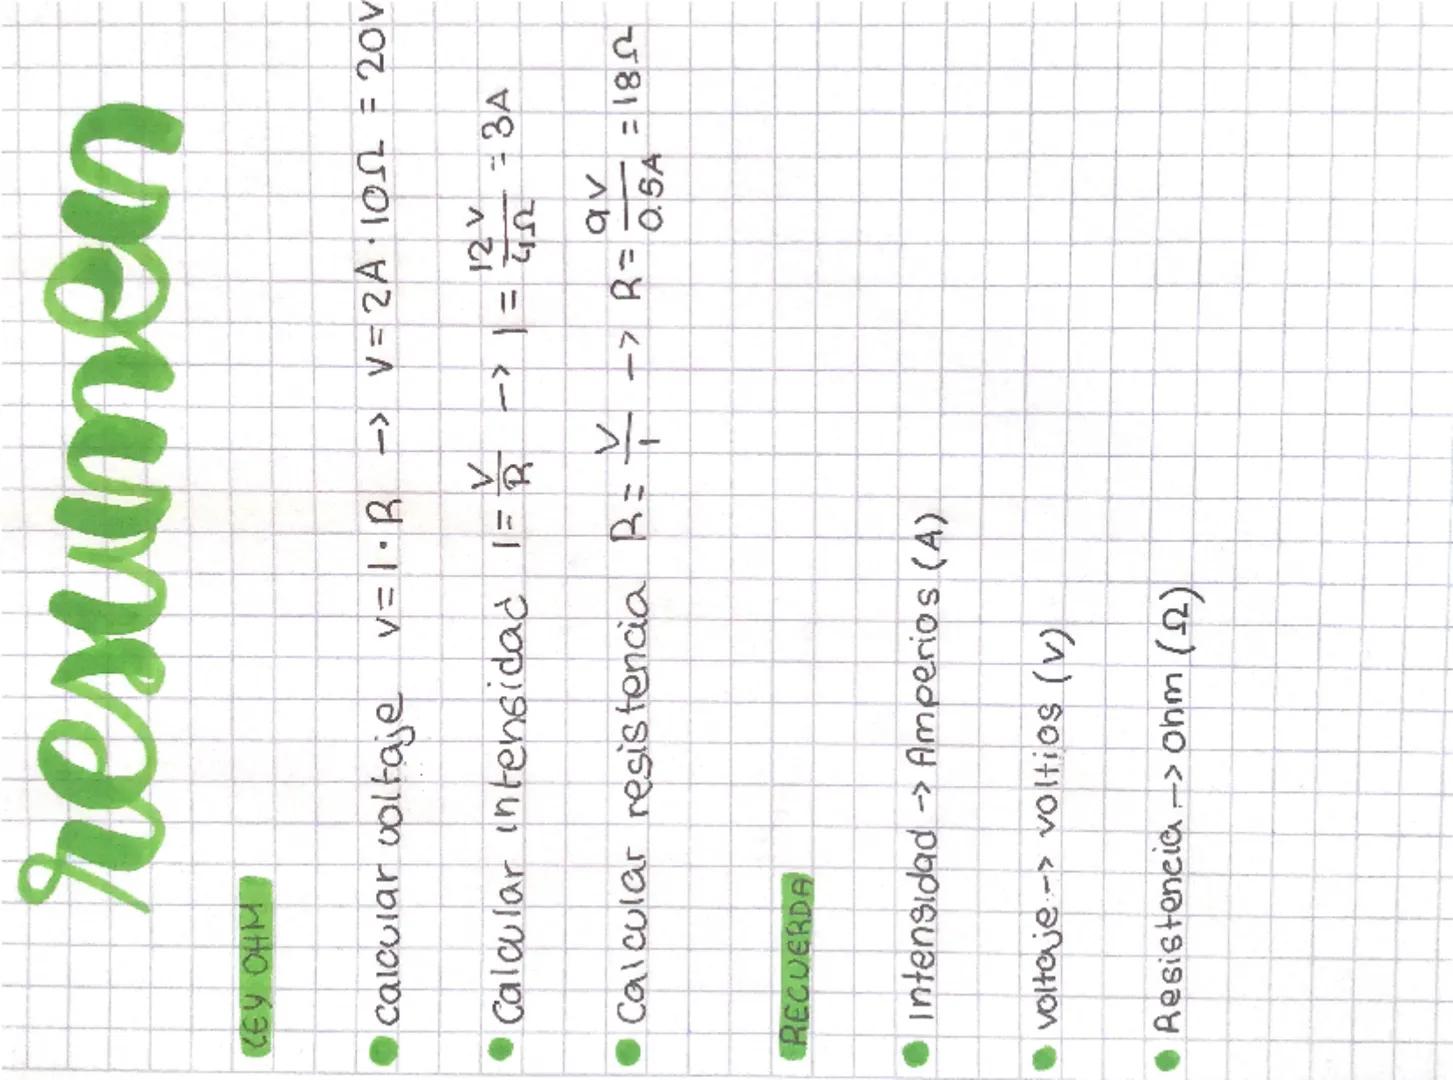 resumen
LEY OHM
calcular voltaje V = I · R --> V = 2A · 10Ω = 20V
Calcular intensidad I = V/R --> I = 12V/4Ω = 3A
Calcular resistencia R = V/I --> R = 9V/0.5A = 18Ω
RECUERDA
Intensidad -> Amperios (A)
voltaje --> voltios (V)
Resistencia --> Ohm (Ω)